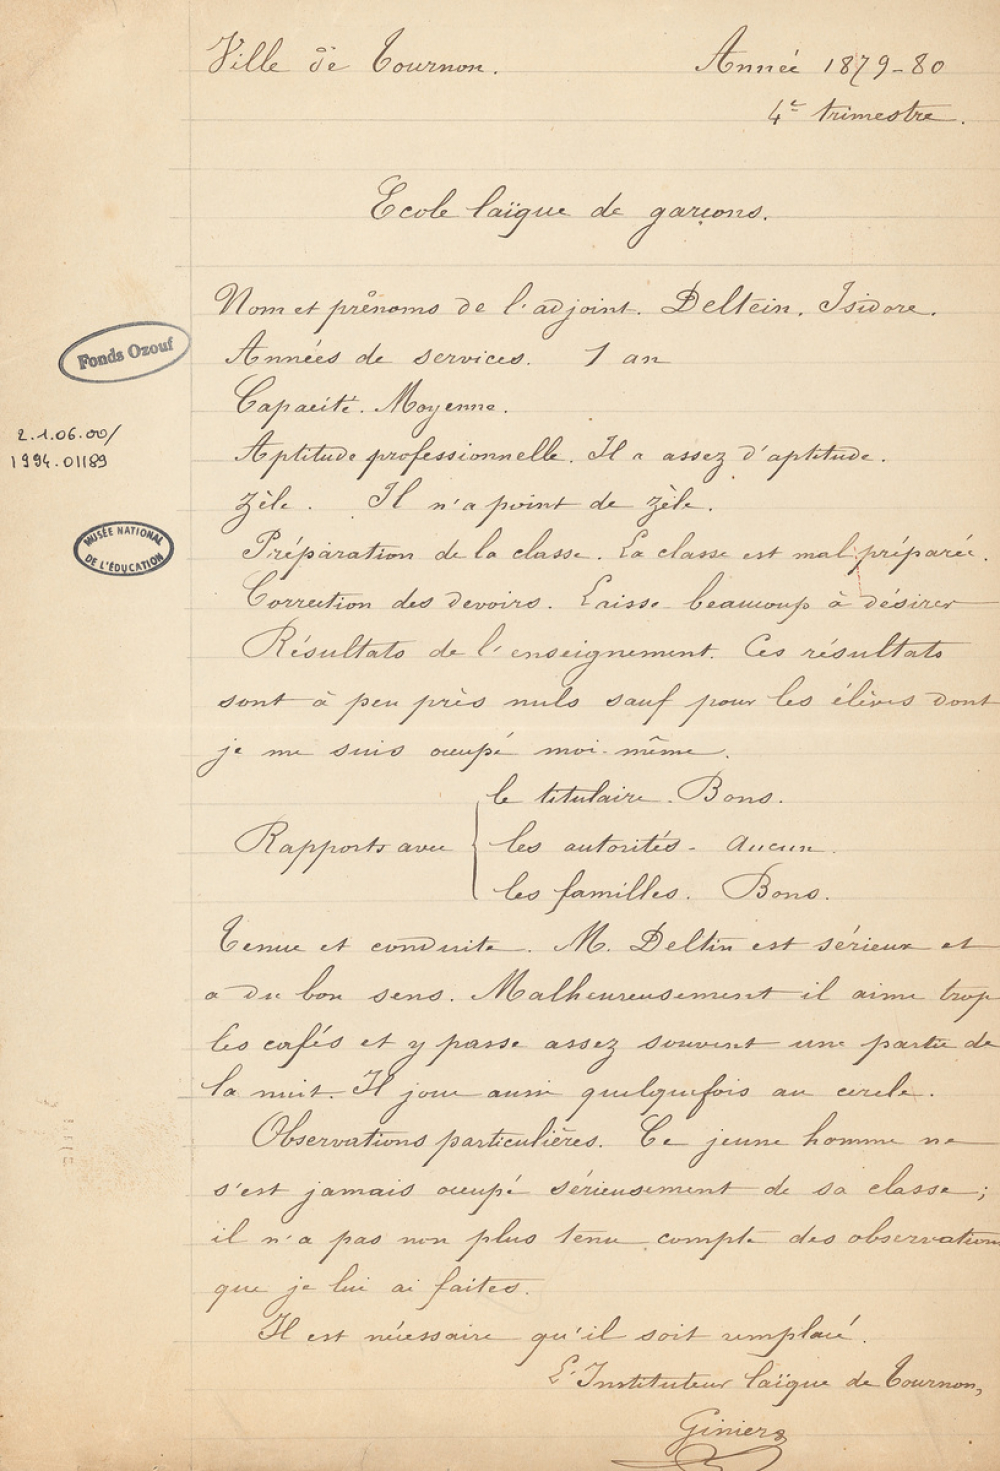 Ville de Tournon.
Année 1879-80
4e trimestre.
Ecole laïque de garçons.
Nom et prénoms de l'adjoint. Deltein, Isidore.
Fonds Ozouf
Années de services. 1 an
Capacité. Moyenne.
2.1.06.00/
1994.01189
Aptitude professionnelle. Il a assez d'aptitude.
Zèle. Il n'a point de zèle.
MUSÉE NATIONAL
DE L'ÉDUCATION
Préparation de la classe. La classe est mal préparée.
Correction des devoirs. Laisse beaucoup à désirer
Résultats de l'enseignement. Ces résultats
sont à peu près nuls sauf pour les élèves dont
je me suis occupé moi-même.
le titulaire. Bons.
Rapports avec { les autorités - Aucun.
les familles. Bons.
Tenue et conduite. M. Deltin est sérieux et
a du bon sens. Malheureusement il aime trop
les cafés et y passe assez souvent une partie de
la nuit. Il joue aussi quelquefois au cercle.
Observations particulières. Ce jeune homme ne
s'est jamais occupé sérieusement de sa classe;
il n'a pas non plus tenu compte des observations
que je lui ai faites.
Il est nécessaire qu'il soit remplacé.
L'Instituteur laïque de Tournon,
Giniers